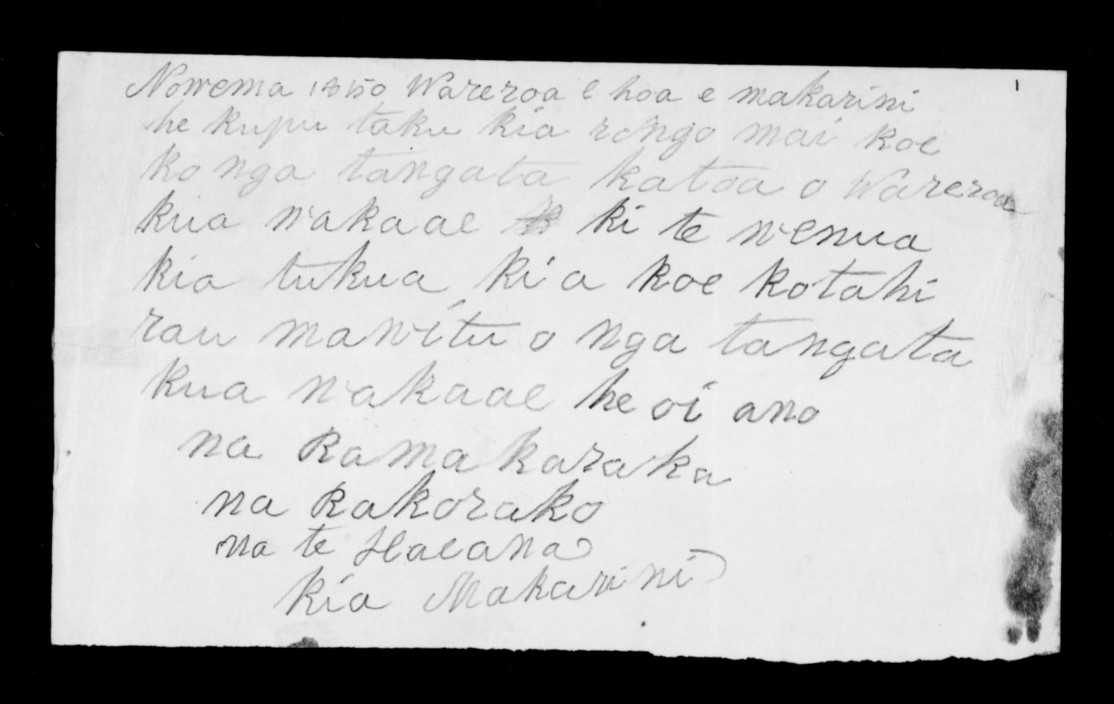 Nowema 1850 Wareroa e hoa e makarini
he kupu taku kia rongo mai koe
ko nga tangata katoa o Wareroa
kua wakaae ki te wenua
kia tukua kia koe kotahi
rau mawitu o nga tangata
kua wakaae he oi ano
na Ramakaraka
na Rakorako
na te Haeana
kia Makarini
1